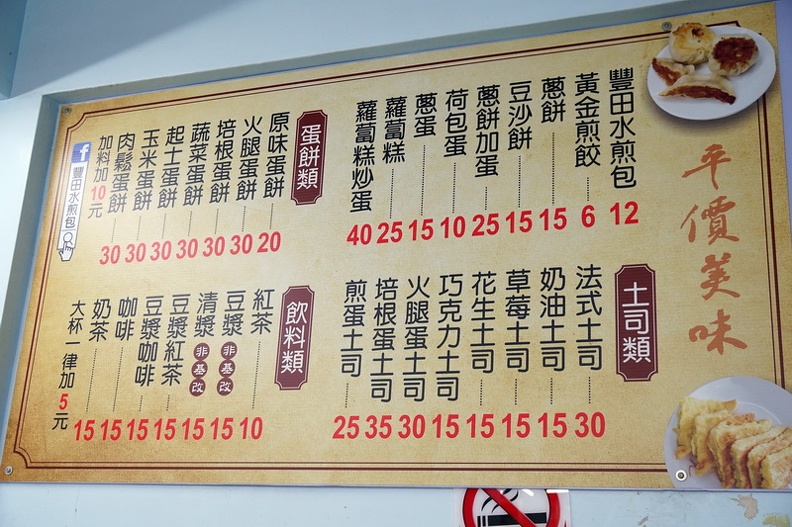 平價美味
豐田水煎包 12
黃金煎餃 6
蔥餅 15
豆沙餅 15
蔥餅加蛋 25
荷包蛋 10
蔥蛋 15
蘿蔔糕 25
蘿蔔糕炒蛋 40
蛋餅類
原味蛋餅 20
火腿蛋餅 30
培根蛋餅 30
蔬菜蛋餅 30
起士蛋餅 30
玉米蛋餅 30
肉鬆蛋餅 30
加料加10元
f 豐田水煎包
土司類
法式土司 30
奶油土司 15
草莓土司 15
花生土司 15
巧克力土司 15
火腿蛋土司 30
培根蛋土司 35
煎蛋土司 25
飲料類
紅茶 10
豆漿 非基改 15
清漿 非基改 15
豆漿紅茶 15
豆漿咖啡 15
咖啡 15
奶茶 15
大杯一律加5元